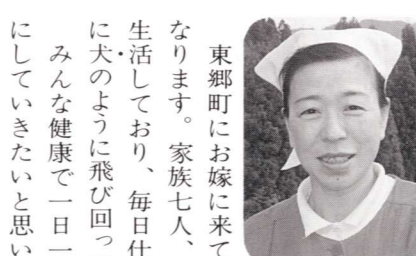 東郷町にお嫁に来て
なります。家族七人、
生活しており、毎日仕
に犬のように飛び回っ
みんな健康で一日一
にしていきたいと思い